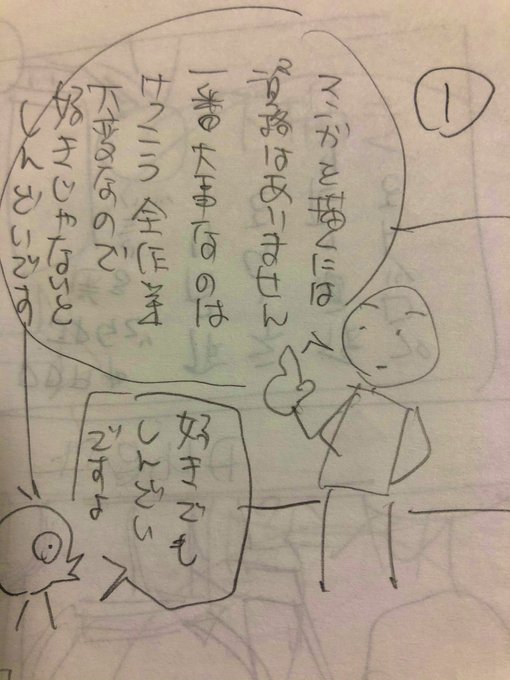 1
マンガを描くには
はありません
一番大事なのは
けっこう全作業
大変なので
好きじゃないと
しんどいです
好きでも
しんどい
ですよ